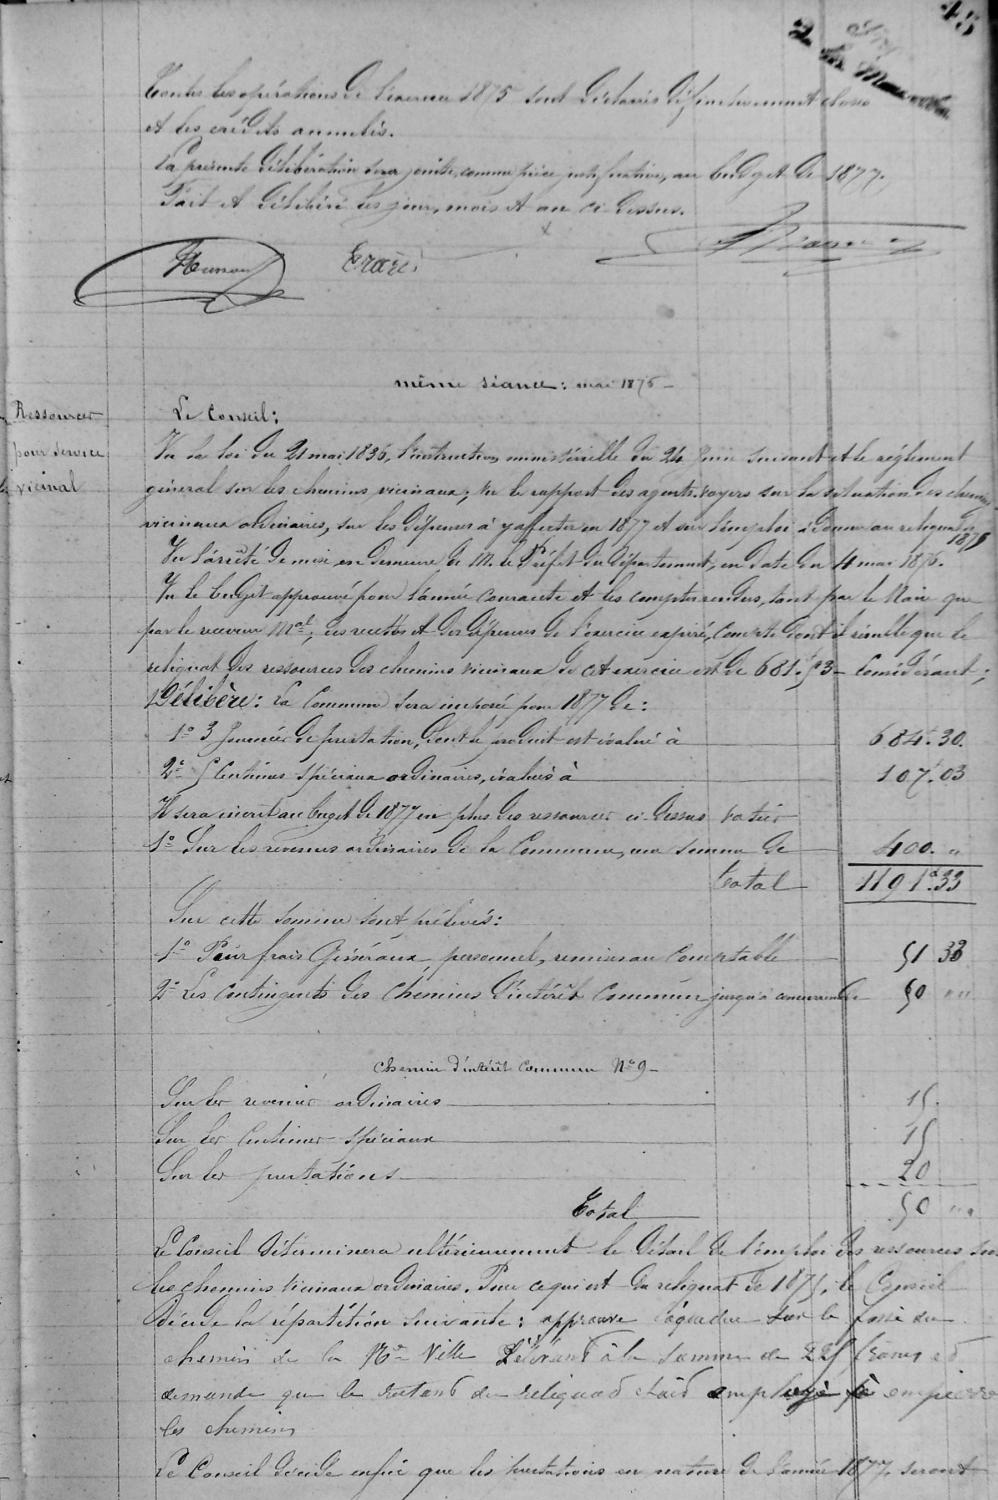 45
Toutes les opérations de l'exercice 1875 sont déclarées définitivement closes
et les crédits annulés.
La présente délibération sera jointe, comme pièce justificative, au budget de 1877.
Fait et délibéré les jour, mois et an ci-dessus.
même séance : mai 1876 -
Ressources
pour service
vicinal
Le Conseil :
Vu la loi du 21 mai 1836, l'instruction ministérielle du 24 juin suivant et le réglement
général sur les chemins vicinaux ; Vu le rapport des agents-voyers sur la situation des chemins
vicinaux ordinaires, sur les dépenses à y affecter en 1877 et sur l'emploi à donner au reliquat de
1875
Vu l'arrêté de mise en demeure de M. le Préfet du département, en date du 4 mai 1876.
Vu le budget approuvé pour l'année courante et les comptes rendus, tant par le Maire que
par le receveur Mal, des recettes et des dépenses de l'exercice expiré, compte dont il résulte que le
reliquat des ressources des chemins vicinaux de cet exercice est de 681.53 - Considérant ;
Délibère : La Commune sera imposée pour 1877 de :
1° 3 journées de prestation, dont le produit est évalué à 684.30.
2° 5 Centimes spéciaux ordinaires, évalués à 107.03
Il sera inscrit au buget de 1877 en plus des ressources ci-dessus votées
1° Sur les revenus ordinaires de la Commune, une somme de 400. "
total 1191.33
Sur cette somme sont prélevés :
1° Pour frais Généraux, personnel, remises au Comptable 51 33
2° Les contingents des Chemins d'intérêt Commun jusqu'à concurrence de 50 " "
Chemin d'intérêt Commun N° 9 -
Sur les revenus ordinaires 15.
Sur les Centimes spéciaux 15
Sur les prestations 20
Total 50 " "
Le Conseil déterminera ultérieurement le détail de l'emploi des ressources sur
les chemins vicinaux ordinaires. Pour ce qui est du reliquat de 1875, le Conseil
décide la répartition suivante : approuve l'aqueduc sur le fossé du
chemin de la Nve Ville s'élevant à la somme de 225 francs et
demande que le restant du reliquat soit employé à empierrer
les chemins
Le Conseil décide enfin que les prestations en nature de l'année 1877, seront